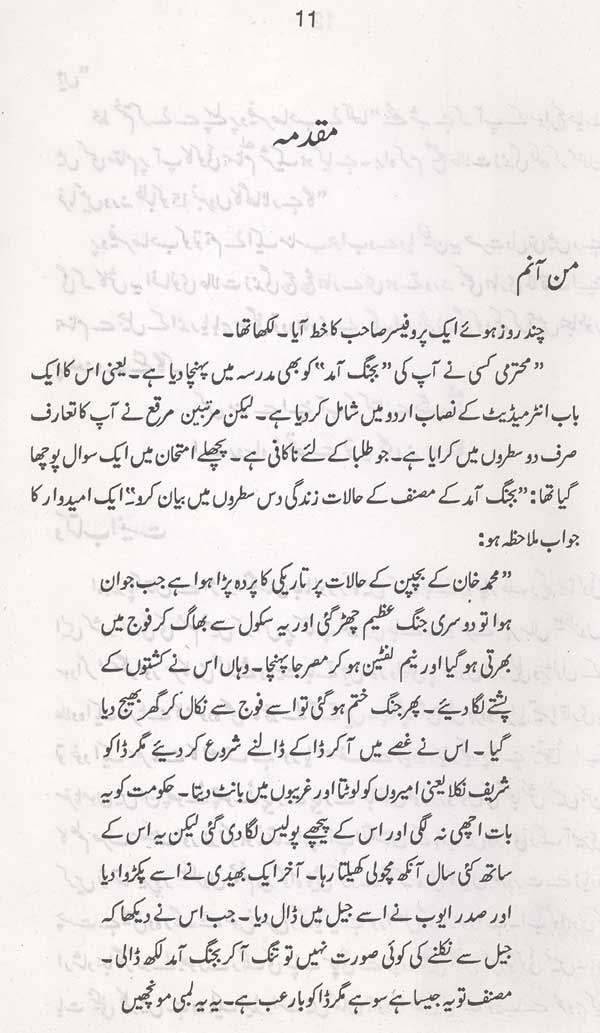 11
مقدمہ
من آنم
چند روز ہوئے ایک پروفیسر صاحب کا خط آیا۔ لکھا تھا۔
”محترمی کسی نے آپ کی ”بجنگ آمد“ کو بھی مدرسہ میں پہنچا دیا ہے۔ یعنی اس کا ایک
باب انٹرمیڈیٹ کے نصاب اردو میں شامل کر دیا ہے۔ لیکن مرتبین مرقع نے آپ کا تعارف
صرف دو سطروں میں کرایا ہے۔ جو طلبا کے لئے ناکافی ہے۔ پچھلے امتحان میں ایک سوال پوچھا
گیا تھا: ”بجنگ آمد کے مصنف کے حالات زندگی دس سطروں میں بیان کرو۔“ ایک امیدوار کا
جواب ملاحظہ ہو:
”محمد خان کے بچپن کے حالات پر تاریکی کا پردہ پڑا ہوا ہے جب جوان
ہوا تو دوسری جنگ عظیم چھڑ گئی اور یہ سکول سے بھاگ کر فوج میں
بھرتی ہو گیا اور نیم لفٹین ہو کر مصر جا پہنچا۔ وہاں اس نے کشتوں کے
پشتے لگا دیئے۔ پھر جنگ ختم ہو گئی تو اسے فوج سے نکال کر گھر بھیج دیا
گیا۔ اس نے غصے میں آ کر ڈاکے ڈالنے شروع کر دیئے مگر ڈاکو
شریف نکلا یعنی امیروں کو لوٹتا اور غریبوں میں بانٹ دیتا۔ حکومت کو یہ
بات اچھی نہ لگی اور اس کے پیچھے پولیس لگا دی گئی لیکن یہ اس کے
ساتھ کئی سال آنکھ مچولی کھیلتا رہا۔ آخر ایک بھیدی نے اسے پکڑوا دیا
اور صدر ایوب نے اسے جیل میں ڈال دیا۔ جب اس نے دیکھا کہ
جیل سے نکلنے کی کوئی صورت نہیں تو تنگ آ کر بجنگ آمد لکھ ڈالی۔
مصنف تو یہ جیسا ہے سو ہے مگر ڈاکو بارعب ہے۔ یہ یہ لمبی مونچھیں